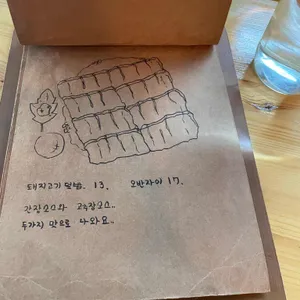 돼지고기 덮밥. 13, 오반자이 17.
간장소스와 고추장소스..
두가지 맛으로 나와요..